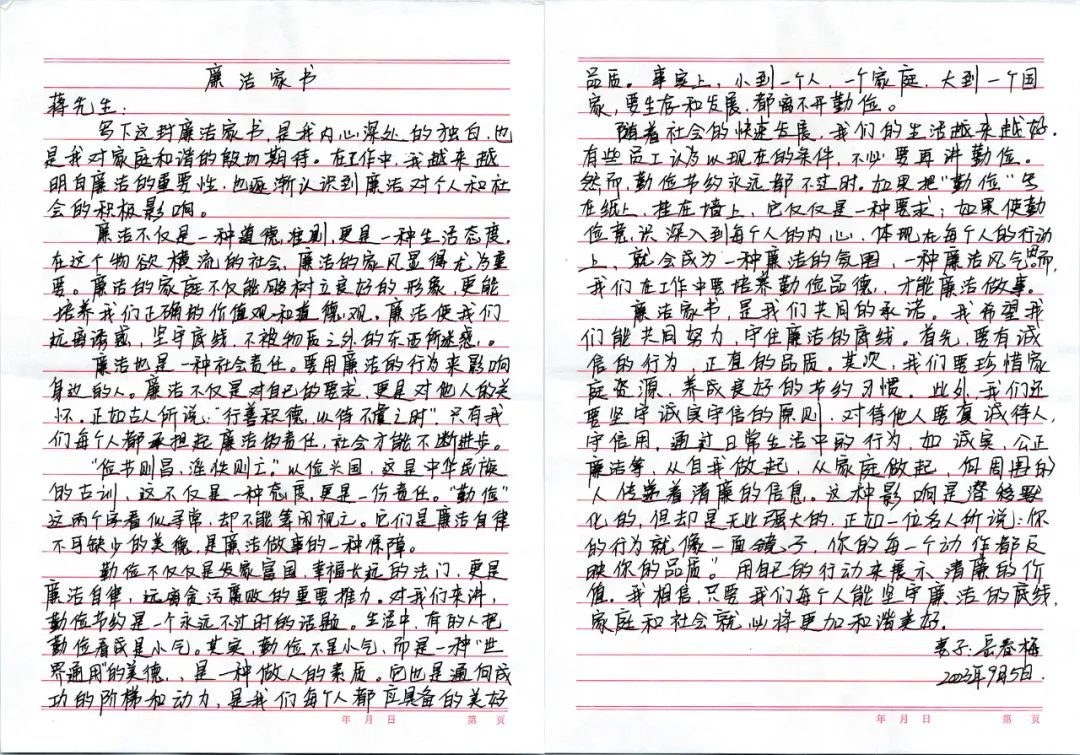 廉洁家书
蒋先生：
写下这封廉洁家书，是我内心深处的独白，也
是我对家庭和谐的殷切期待。在工作中，我越来越
明白廉洁的重要性，也逐渐认识到廉洁对个人和社
会的积极影响。
廉洁不仅是一种道德准则，更是一种生活态度。
在这个物欲横流的社会，廉洁的家风显得尤为重
要。廉洁的家庭不仅能够树立良好的形象，更能
培养我们正确的价值观和道德观。廉洁使我们
抗拒诱惑，坚守底线，不被物质之外的东西所迷惑。
廉洁也是一种社会责任。要用廉洁的行为来影响
身边的人。廉洁不仅是对自己的要求，更是对他人的关
怀。正如古人所说：“行善积德，以待不虞之时”。只有我
们每个人都承担起廉洁的责任，社会才能不断进步。
“俭节则昌，淫佚则亡。”以俭兴国，这是中华民族
的古训，这不仅是一种态度，更是一份责任。“勤俭”
这两个字看似寻常，却不能等闲视之。它们是廉洁自律
不可缺少的美德，是廉洁做事的一种保障。
勤俭不仅仅是发家富国，幸福长远的法门，更是
廉洁自律，远离贪污腐败的重要推力。对我们来讲，
勤俭节约是一个永远不过时的话题。生活中，有的人把
勤俭看成是小气。其实，勤俭不是小气，而是一种“世
界通用”的美德，是一种做人的素质。它也是通向成
功的阶梯和动力，是我们每个人都应具备的美好
年 月 日 第 页
品质。事实上，小到一个人，一个家庭，大到一个国
家，要生存和发展，都离不开勤俭。
随着社会的快速发展，我们的生活越来越好。
有些员工认为以现在的条件，不必要再讲勤俭。
然而，勤俭节约永远都不过时。如果把“勤俭”写
在纸上，挂在墙上，它仅仅是一种要求；如果使勤
俭意识深入到每个人的内心，体现在每个人的行动
上，就会成为一种廉洁的氛围，一种廉洁风气。而
我们在工作中要培养勤俭品德，才能廉洁做事。
廉洁家书，是我们共同的承诺。我希望我
们能共同努力，守住廉洁的底线。首先，要有诚
信的行为，正直的品质。其次，我们要珍惜家
庭资源，养成良好的节约习惯。此外，我们还
要坚守诚实守信的原则，对待他人要真诚待人，
守信用，通过日常生活中的行为，如诚实，公正
廉洁等，从自我做起，从家庭做起，向周围的
人传递着清廉的信息。这种影响是潜移默
化的，但却是无比强大的，正如一位名人所说：你
的行为就像一面镜子，你的每一个动作都反
映你的品质”。用自己的行动来展示清廉的价
值。我相信，只要我们每个人能坚守廉洁的底线，
家庭和社会就必将更加和谐美好。
妻子：岳春梅
2023年9月5日.
年 月 日 第 页